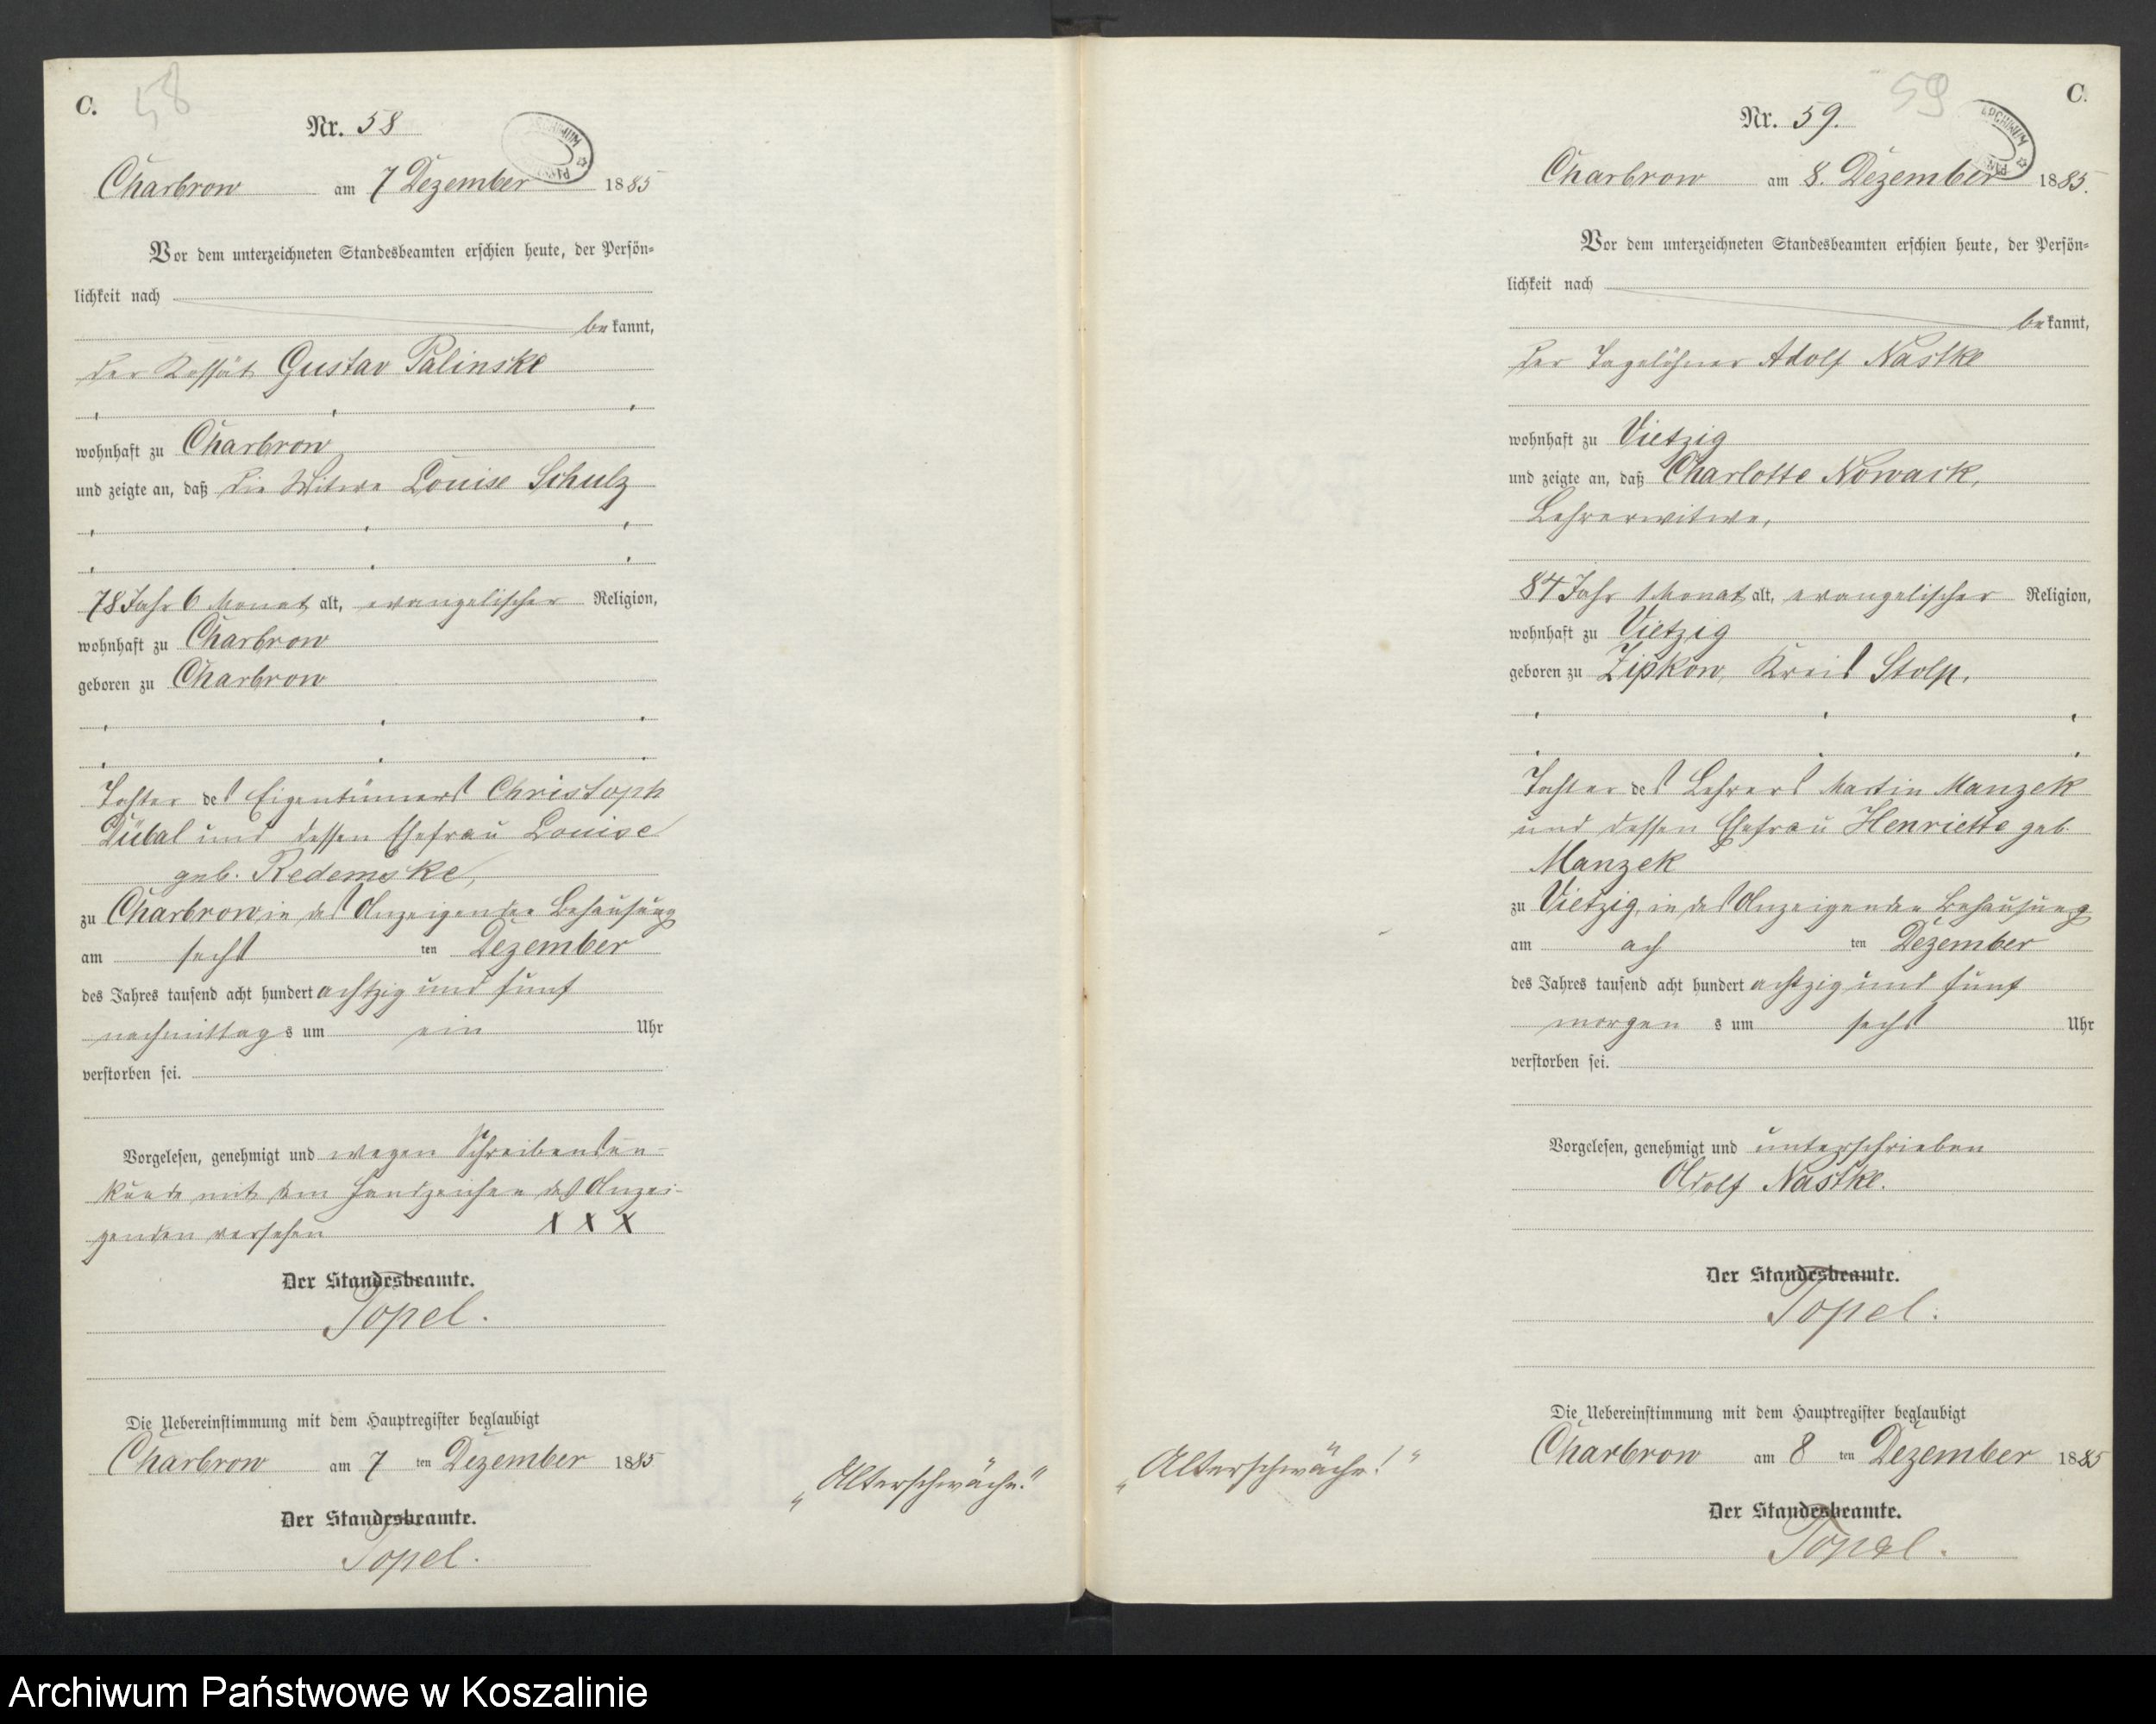 C.
58
Nr. 58
Charbrow am 7 Dezember 1885
Vor dem unterzeichneten Standesbeamten erschien heute, der Persön-
lichkeit nach
bekannt,
der Kossät Gustav Palinske
wohnhaft zu Charbrow
und zeigte an, daß die Witwe Louise Schulz
78 Jahr 6 Monat alt, evangelischer Religion,
wohnhaft zu Charbrow
geboren zu Charbrow
Tochter des Eigentümers Christoph
Dübal und dessen Ehefrau Louise
geb. Redemske,
zu Charbrow in des Anzeigenden Behausung
am sechsten Dezember
des Jahres tausend acht hundert achtzig und fünf
nachmittags um ein Uhr
verstorben sei.
Vorgelesen, genehmigt und wegen Schreibensun-
kunde mit dem Handzeichen des Anzei-
genden versehen XXX
Der Standesbeamte.
Topel.
Die Uebereinstimmung mit dem Hauptregister beglaubigt
Charbrow am 7 ten Dezember 1885
Der Standesbeamte.
Topel.
„Alterschwäche.“
59
C.
Nr. 59.
Charbrow am 8. Dezember 1885.
Vor dem unterzeichneten Standesbeamten erschien heute, der Persön-
lichkeit nach
bekannt,
der Tagelöhner Adolf Nastke
wohnhaft zu Vietzig
und zeigte an, daß Charlotte Nowack,
Lehrerwitwe,
84 Jahr 1 Monat alt, evangelischer Religion,
wohnhaft zu Vietzig
geboren zu Zipkow, Kreis Stolp,
Tochter des Lehrers Martin Manzek
und dessen Ehefrau Henriette geb.
Manzek
zu Vietzig, in des Anzeigenden Behausung
am achten Dezember
des Jahres tausend acht hundert achtzig und fünf
morgens um sechs Uhr
verstorben sei.
Vorgelesen, genehmigt und unterschrieben
Adolf Nastke.
Der Standesbeamte.
Topel.
Die Uebereinstimmung mit dem Hauptregister beglaubigt
Charbrow am 8 ten Dezember 1885
Der Standesbeamte.
Topel.
„Alterschwäche!“
Archiwum Państwowe w Koszalinie